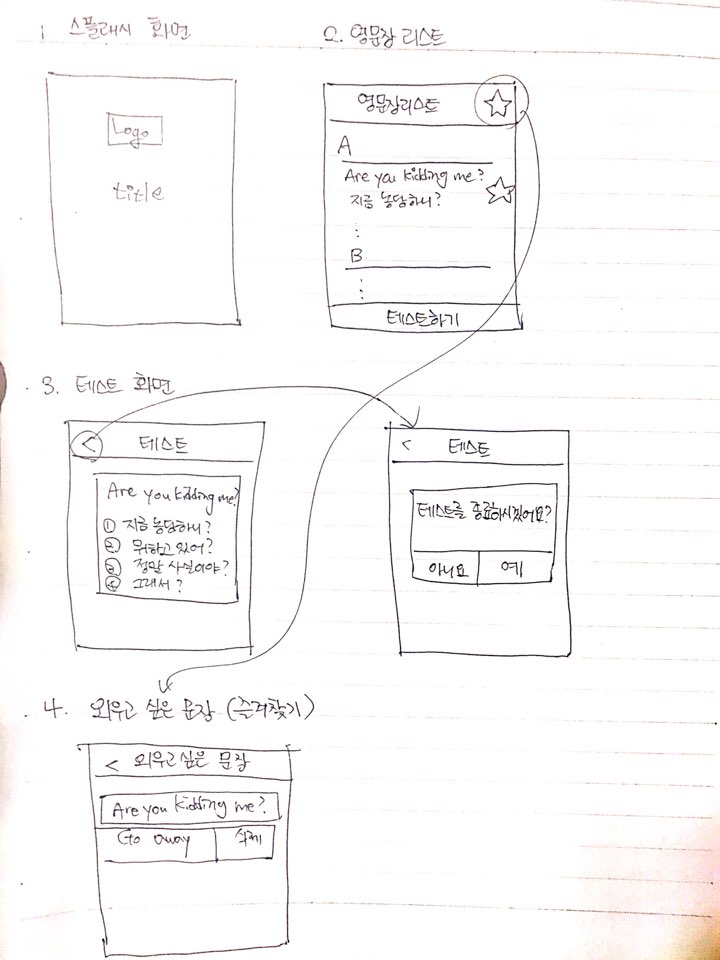 1 스플래시 화면
2. 영문장 리스트
Logo
title
영문장리스트 ☆
A
Are you kidding me? ☆
지금 농담하니?
⋮
B
⋮
테스트하기
3. 테스트 화면
< 테스트
Are you kidding me?
① 지금 농담하니?
② 뭐하고 있어?
③ 정말 사실이야?
④ 그래서?
< 테스트
테스트를 종료하시겠어요?
아니요 예
4. 외우고 싶은 문장 (즐겨찾기)
< 외우고 싶은 문장
Are you kidding me?
Go away 삭제